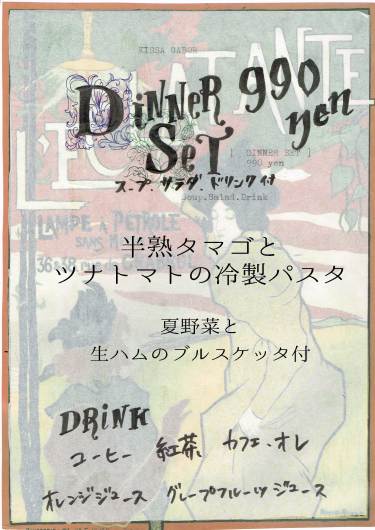 KISSA GABOR
L'ECLATANTE
DINNER 990
yen
SET
[ DINNER SET ]
990 yen
スープ、サラダ、ドリンク付
Soup.Salad.Drink
LAMPE À PÉTROLE
SANS
36&38 rue
半熟タマゴと
ツナトマトの冷製パスタ
夏野菜と
生ハムのブルスケッタ付
DRINK
コーヒー 紅茶 カフェ・オレ
オレンジジュース グレープフルーツジュース